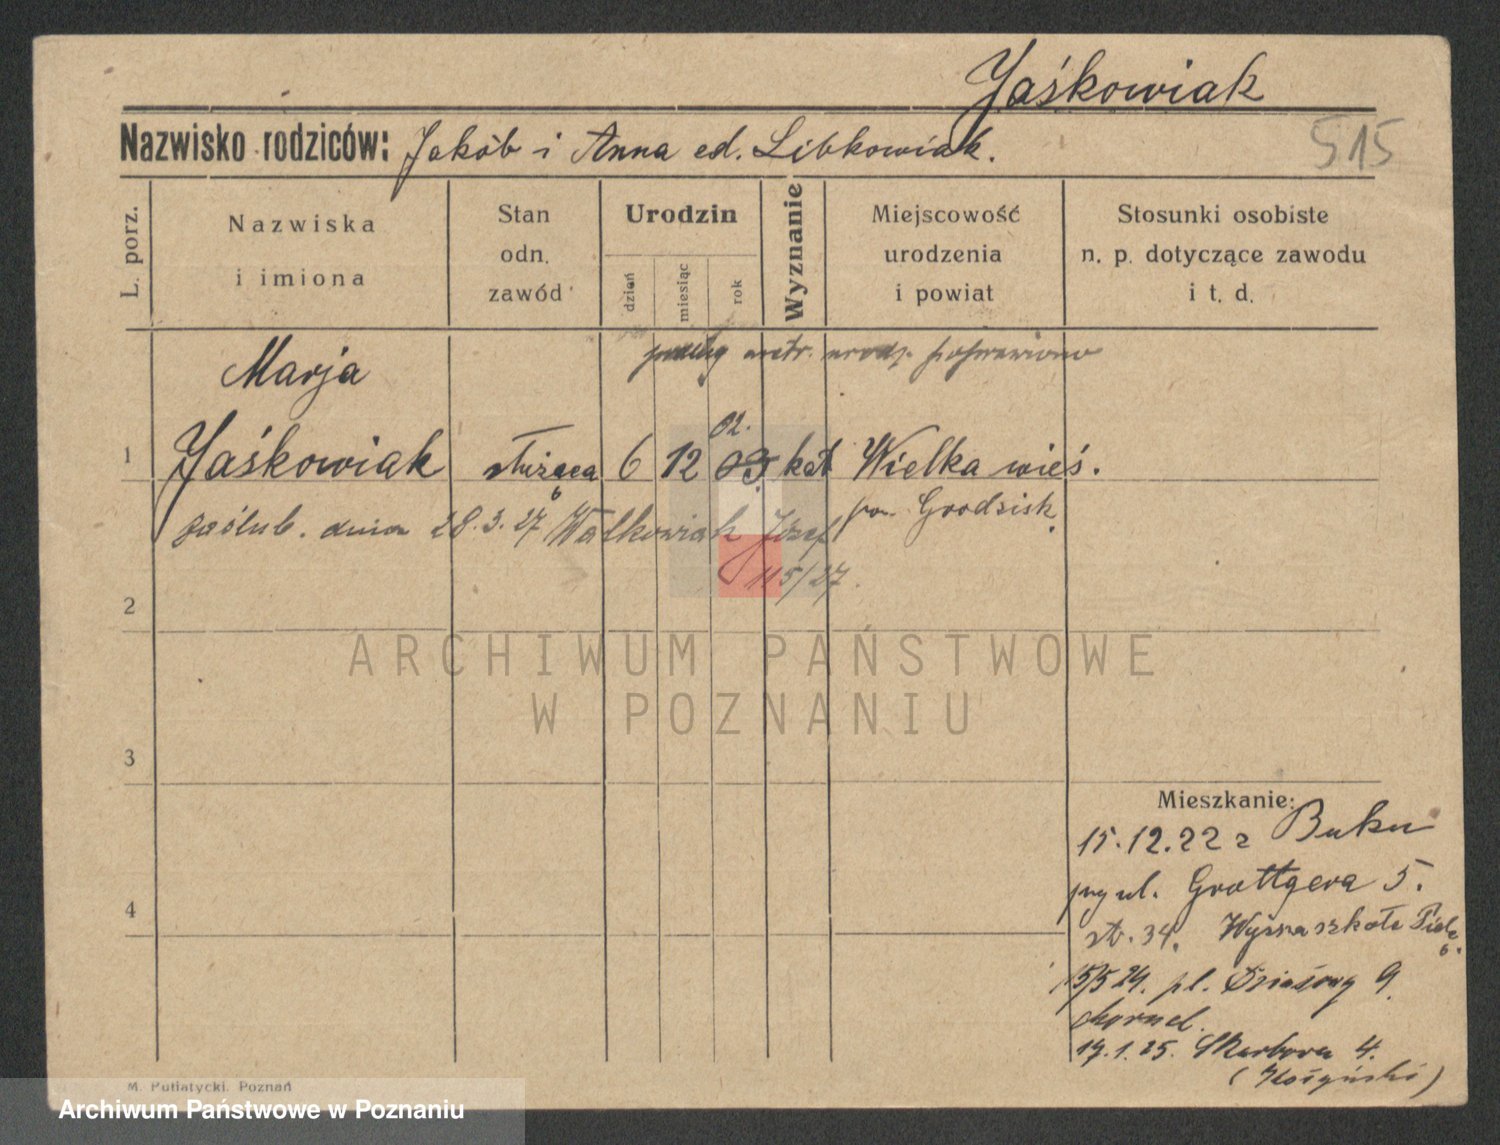 Jaśkowiak
Nazwisko rodziców: Jakób i Anna ed. Libkowiak.
515
L. porz.
Nazwiska
i imiona
Stan
odn.
zawód
Urodzin
dzień
miesiąc
rok
Wyznanie
Miejscowość
urodzenia
i powiat
Stosunki osobiste
n. p. dotyczące zawodu
i t. d.
metr. urodz. poprawiono
Marja
02.
1 Jaśkowiak służąca 6 12 03 kat Wielka wieś.
pow. Grodzisk.
zaślub. dnia 28.3.27 Walkowiak Józef
115/27.
2
ARCHIWUM PAŃSTWOWE
W POZNANIU
3
Mieszkanie:
15.12.22 z Buku
przy ul. Grottgera 5.
4
34. Wyższa szkoła
15/5 24. pl. 9.
17.1.25. Skarbowa 4.
M. Putiatycki, Poznań
Archiwum Państwowe w Poznaniu